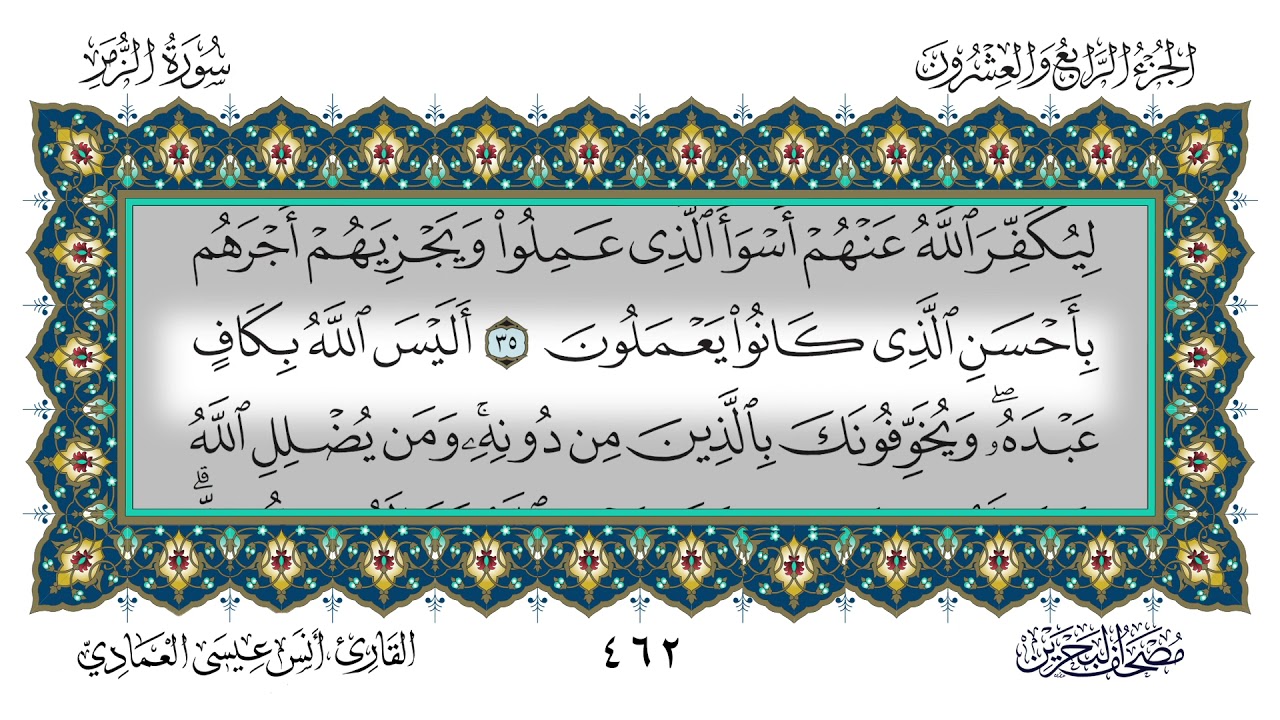 الجزء الرابع والعشرون
سورة الزمر
لِيُكَفِّرَ ٱللَّهُ عَنْهُمْ أَسْوَأَ ٱلَّذِى عَمِلُوا۟ وَيَجْزِيَهُمْ أَجْرَهُم
بِأَحْسَنِ ٱلَّذِى كَانُوا۟ يَعْمَلُونَ ٣٥ أَلَيْسَ ٱللَّهُ بِكَافٍ
عَبْدَهُۥ ۖ وَيُخَوِّفُونَكَ بِٱلَّذِينَ مِن دُونِهِۦ ۚ وَمَن يُضْلِلِ ٱللَّهُ
مصحف البحرين
٤٦٢
القارئ، أنس عيسى العمادي